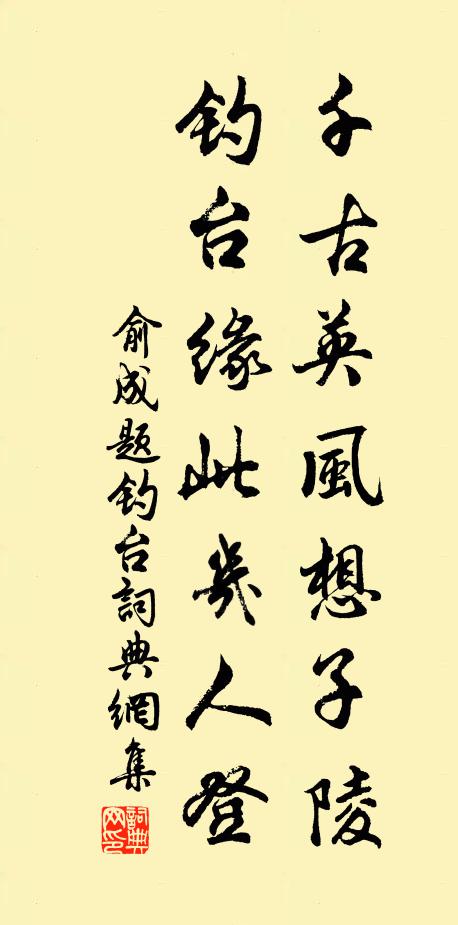 千古英風想子陵
钓台緣此幾人登
俞成题钓台詞典網集
詞典网印